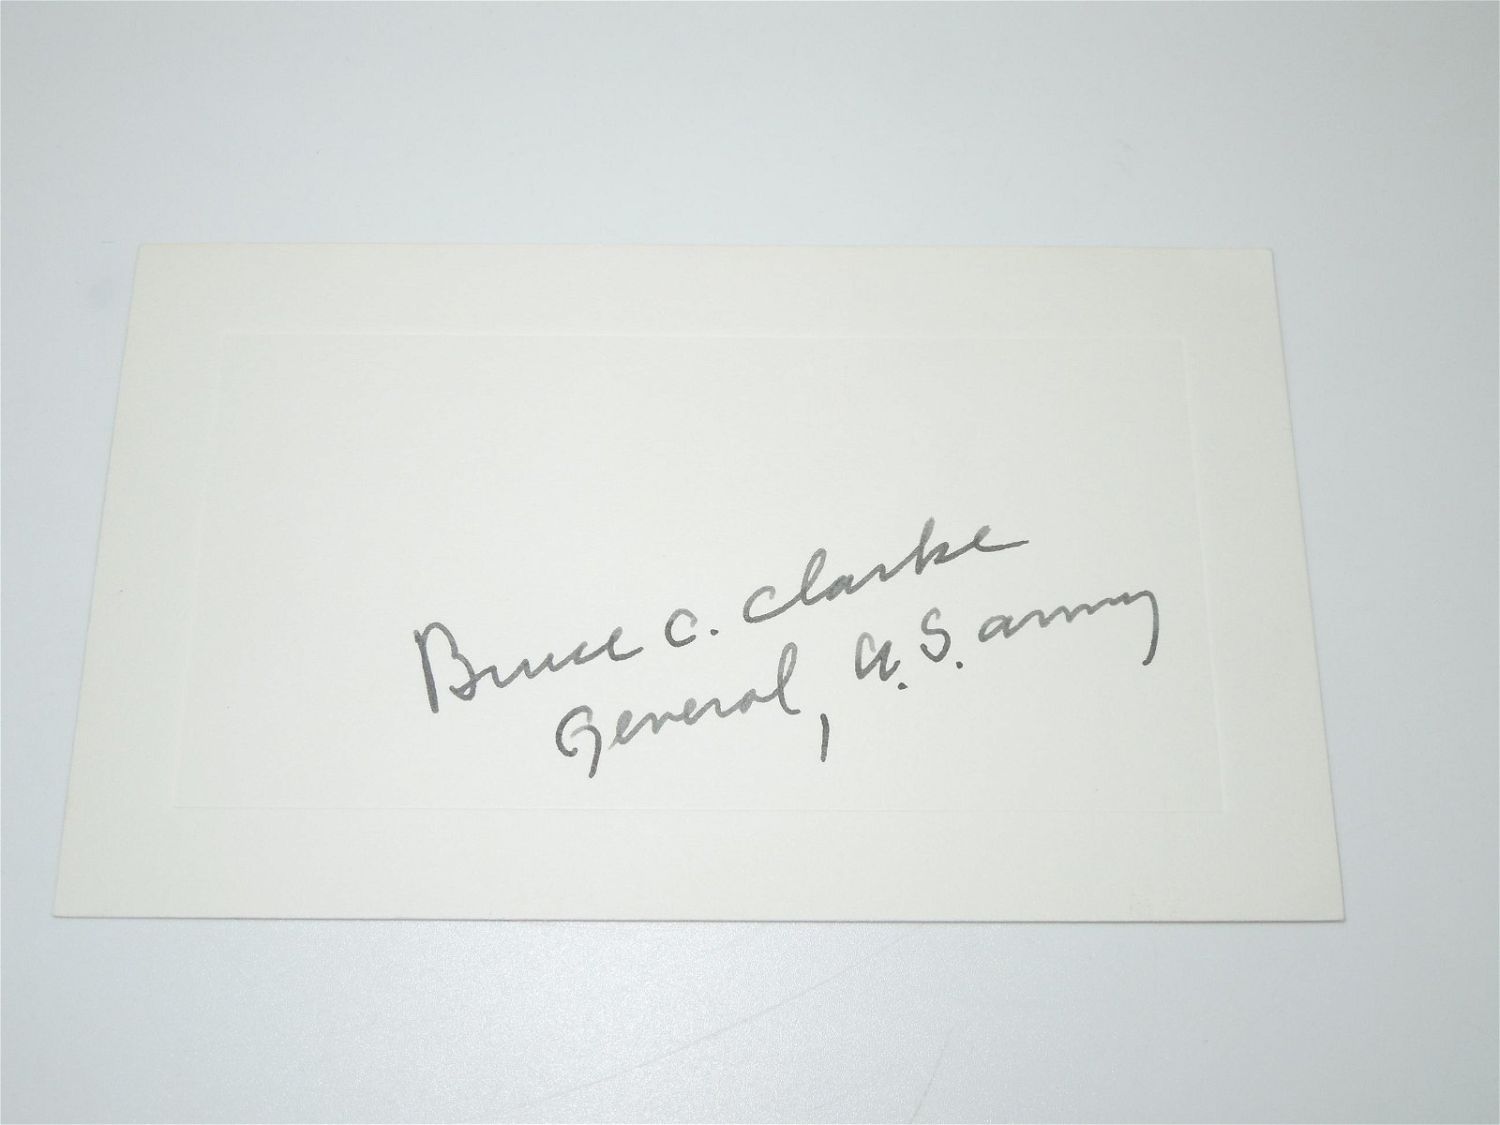 Bruce C. Clarke
General, U.S. Army